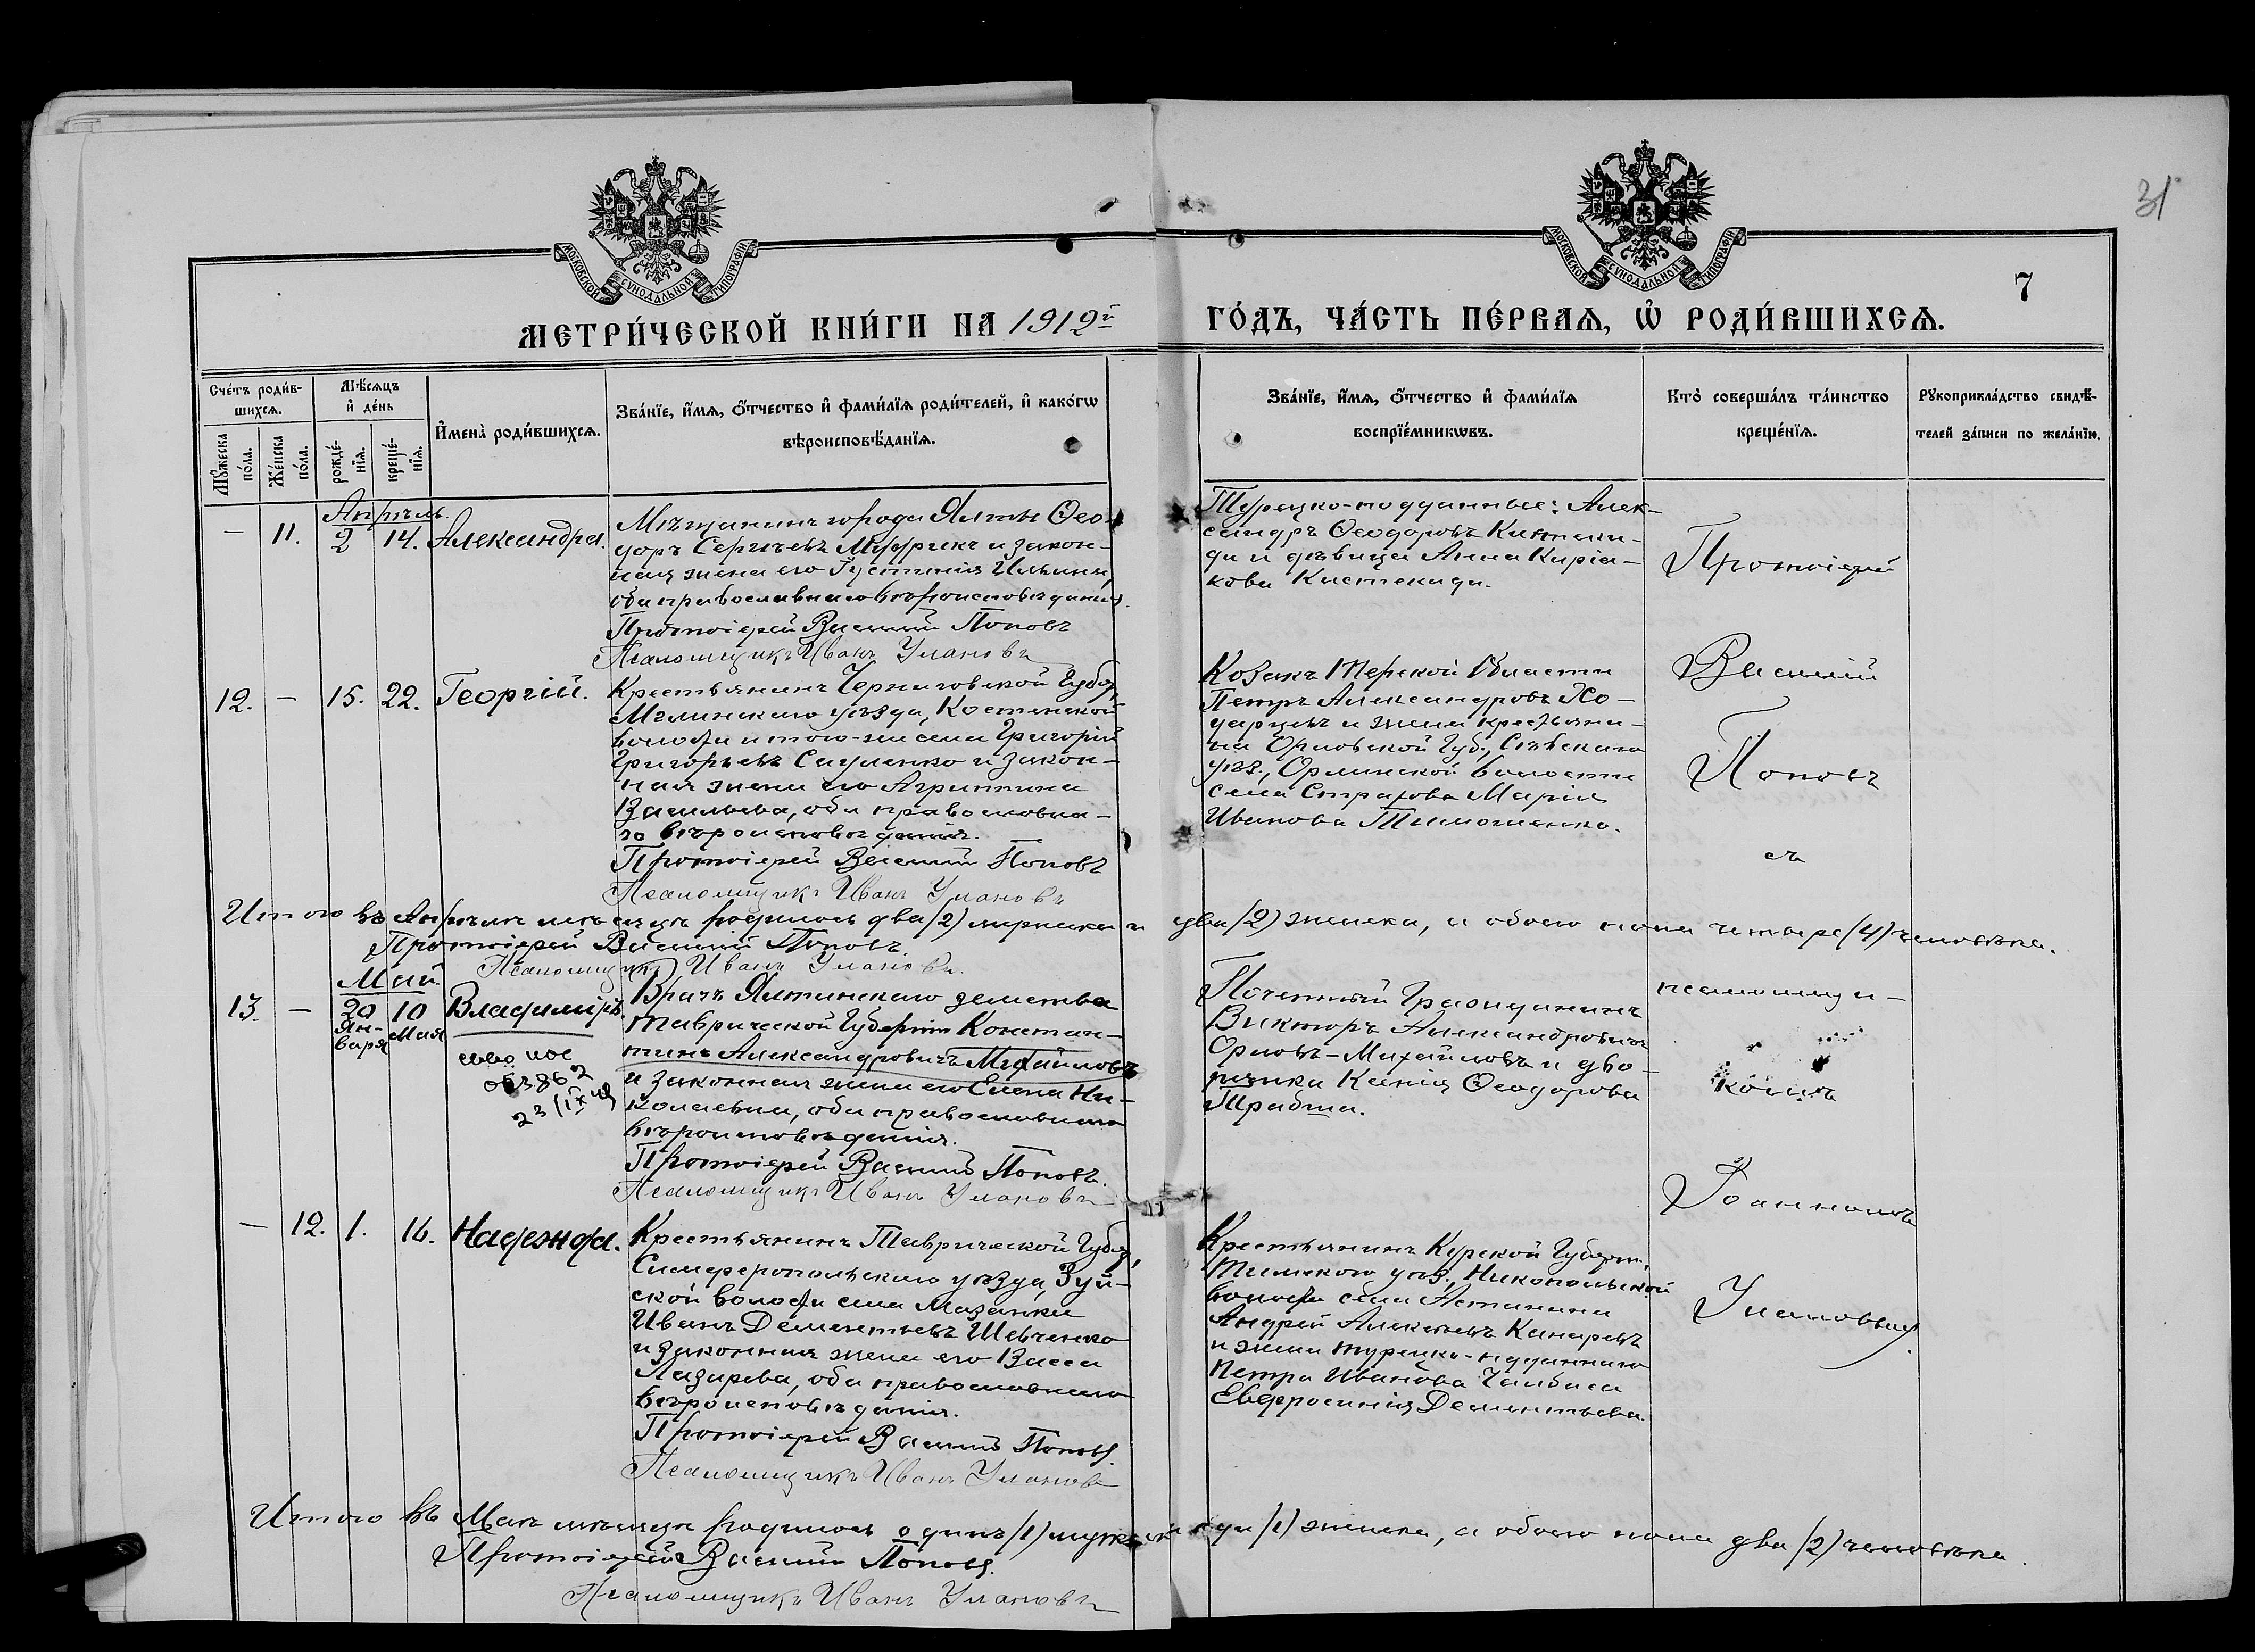 31
МОСКОВСКОЙ СУНОДАЛЬНОЙ ТИПОГРАФІИ
МОСКОВСКОЙ СУНОДАЛЬНОЙ ТИПОГРАФІИ
7
МЕТРИ́ЧЕСКОЙ КНИ́ГИ НА 1912й ГО́ДЪ, ЧА́СТЬ ПЕ́РВАѦ, Ѡ҆ РОДИ́ВШИХСѦ.
Сче́тъ роди́в-
шихсѧ.
Мꙋ́жеска
по́ла.
Же́нска
по́ла.
Мѣ́сѧцъ
и҆ де́нь
рожде́-
нїѧ.
креще́-
нїѧ.
И҆мена̀ роди́вшихсѧ.
Зва́нїе, и҆́мѧ, ѻ҆́тчество и҆ фами́лїѧ роди́телей, и҆ како́гѡ
вѣроисповѣ́данїѧ.
Зва́нїе, и҆́мѧ, ѻ҆́тчество и҆ фами́лїѧ
воспрїе́мникѡвъ.
Кто̀ соверша́лъ та́инство
креще́нїѧ.
Рꙋкоприкла́дство свидѣ́-
телей за́писи по жела́нїю.
Апрѣль.
— 11. 2 14. Александра.
Мѣщанинъ города Ялты Ѳео-
доръ Сергѣевъ и закон-
ная жена его Іустинія Ильина,
оба православнаго вѣроисповѣданія.
Протоіерей Василій Поповъ
Псаломщикъ Иванъ Улановъ
Турецко-подданные: Алек-
сандръ Ѳеодоровъ
ди и дѣвица Анна Киріа-
кова
Протоіерей
12. — 15. 22. Георгій.
Крестьянинъ Черниговской Губер,
Мглинскаго уѣзда, Костенской
волости и того-же села Григорій
Григорьевъ и закон-
ная жена его Агриппина
Васильева, оба православна-
го вѣроисповѣданія.
Протоіерей Василій Поповъ
Псаломщикъ Иванъ Улановъ
Козакъ Терской Области
Петръ Александровъ Хо-
и жена крестьяни-
на Орловской Губ., Сѣвскаго
уѣз., Орлинской волости
села Страхова Марія
Иванова Тимошенко.
Василій
Поповъ
съ
Итого въ Апрѣлѣ мѣсяцѣ родилось два /2/ мужска и два /2/ женска, а обоего пола четыре /4/ человѣка.
Протоіерей Василій Поповъ
Псаломщикъ Иванъ Улановъ.
Май
13. — 20 Ян-
варя
10 Мая
Владиміръ.
23/IX
Врачъ Ялтинскаго земства
Таврической Губерніи Констан-
тинъ Александровичъ Михайловъ
и законная жена его Елена Ни-
колаевна, оба православнаго
вѣроисповѣданія.
Протоіерей Василій Поповъ.
Псаломщикъ Иванъ Улановъ
Почетный Гражданинъ
Викторъ Александровичъ
Орловъ-Михайловъ и дво-
рянка Ксенія Ѳеодорова
псаломщи-
комъ
Іоанномъ
— 12. 1. 16. Надежда.
Крестьянинъ Таврической Губер,
Симферопольскаго уѣзда, Зуй-
ской волости села Мазанки
Иванъ Дементьевъ Шевченко
и законная жена его Васса
Лазарева, оба православнаго
вѣроисповѣданія.
Протоіерей Василій Поповъ.
Псаломщикъ Иванъ Улановъ
Крестьянинъ Курской Губерн.,
Тимскаго уѣз., Никопольской
волости села
Андрей Алексѣевъ Канаревъ
и жена турецко-подданнаго
Петра Иванова
Евфросинія Дементьева.
Улановымъ.
Итого въ Маѣ мѣсяцѣ родилось одинъ /1/ мужска одна /1/ женска, а обоего пола два /2/ человѣка.
Протоіерей Василій Поповъ.
Псаломщикъ Иванъ Улановъ